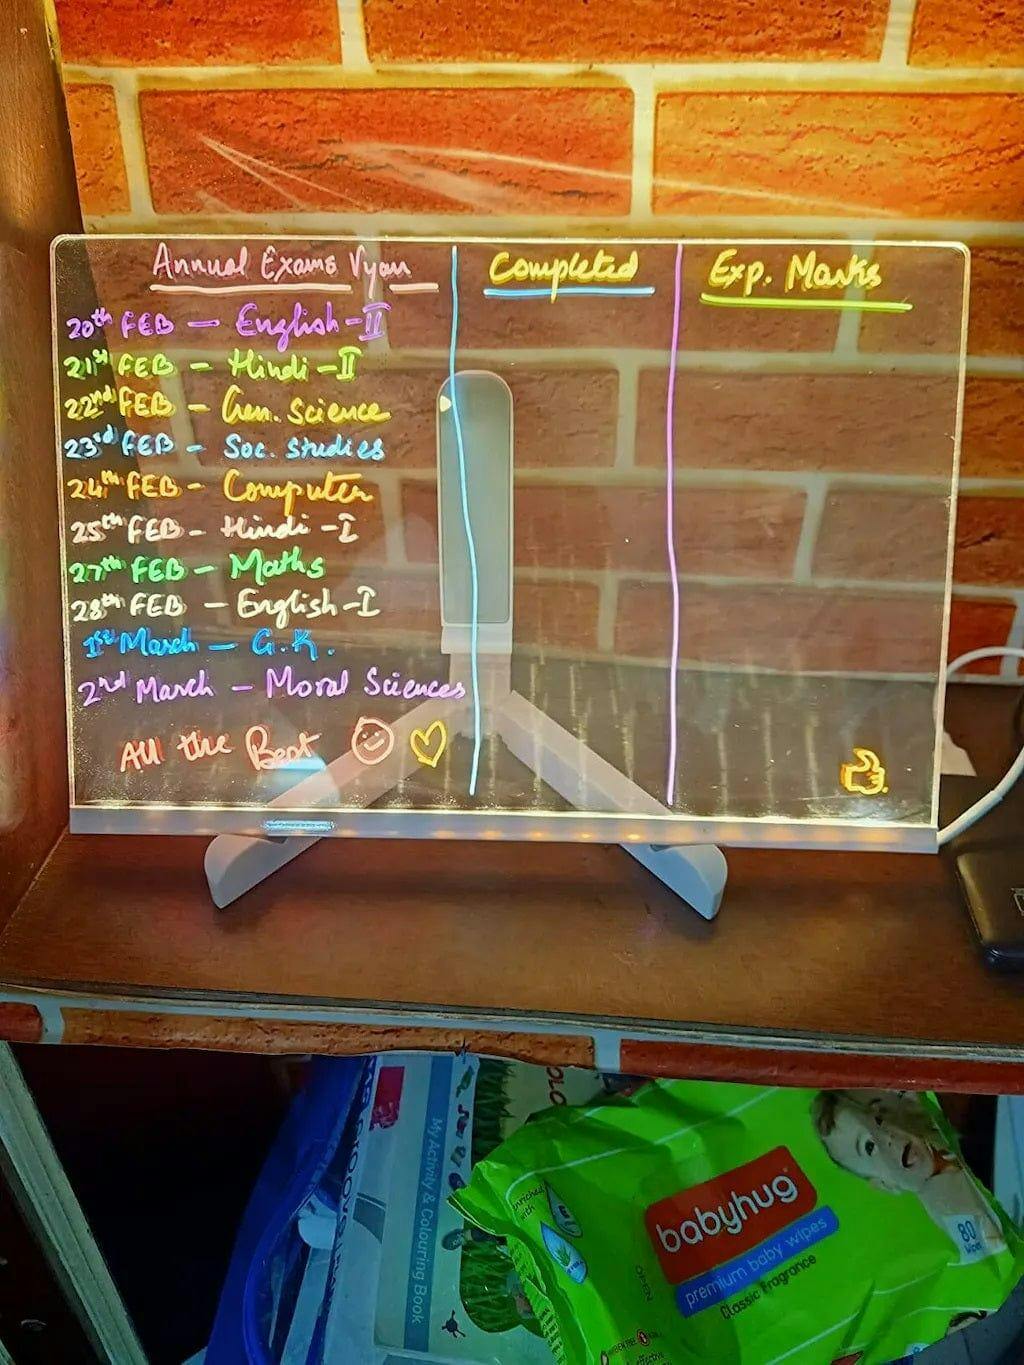 Annual Exams Vyan
Completed
Exp. Marks
20th FEB — English-II
21st FEB - Hindi-II
22nd FEB - Gen. Science
23rd FEB - Soc. Studies
24th FEB - Computer
25th FEB - Hindi-I
27th FEB - Maths
28th FEB - English-I
1st March - G.K.
2nd March - Moral Sciences
All the Best
My Activity & Colouring Book
enriched with
babyhug
premium baby wipes
Classic Fragrance
80
Wipes